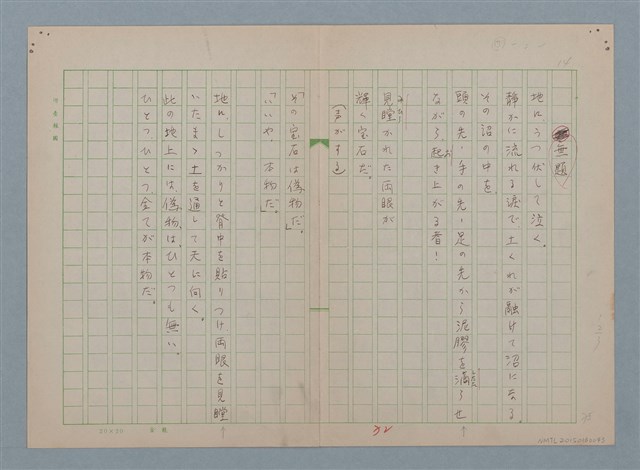 14
無題
地にうつ伏して泣く。
静かに流れる涙で、土くれが融けて沼になる。
その沼の中を、
頭の先・手の先・足の先から泥膠を滴らせ
ながら起き上がる者!
お
見瞠かれた両眼が
みひら
輝く宝石だ。
(声がする)
「その宝石は偽物だ。」
「いいや、本物だ。」
地にしっかりと背中を貼りつけ両眼を見瞠
いたまゝ土を通して天に向く。
此の地上には、偽物は、ひとつも無い。
ひとつひとつ、全てが本物だ。
20×20
32
NMTL20120180093